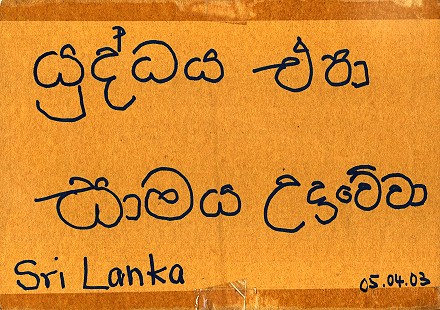 යුද්ධය එපා
සාමය උදාවේවා
Sri Lanka 05.04.03